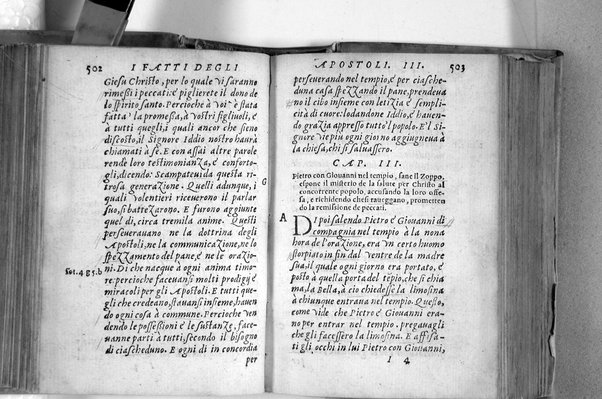 502 I FATTI DEGLI
Giesu Christo, per lo quale vi saranno
rimeßi i peccati: e piglierete il dono de
lo spirito santo. Percioche à voi è stata
fatta la promessa, à vostri figliuoli, e
à tutti quegli, i quali ancor che sieno
discosto, il Signore Iddio nostro haurà
chiamati à se. E con assai altre parole
rende loro testimonianza, e conforto-
gli, dicendo: Scampateui da questa ri-
trosa generazione. Quelli adunque, i
quali volentieri riceuerono il parlar
suo, si battezarono. E furono aggiunte
quel dì, circa tremila anime. Quelli
perseuerauano ne la dottrina degli
Apostoli, ne la communicazione, ne lo
spezzamento del pane, e ne le orazio-
ni. Di che nacque à ogni anima timo-
re: percioche faceuansi molti prodigij e
miracoli per gli Apostoli. E tutti que-
gli che credeano, stauansi insieme, hauen
do ogni cosa à comune. Percioche ven-
dendo le possessioni e le sustanze, face-
uanne parti à tutti, secondo il bisogno
di ciascheduno. E ogni dì in concordia
per
G
APOSTOLI. III. 503
perseuerando nel tempio, e per ciasche-
duna casa spezzando il pane, prendeua
no il cibo insieme con letizia e sempli-
cità di cuore: lodandone Iddio, e hauen-
do grazia appresso tutto'l popolo. E'l Si
gnore vie più ogni giorno aggiugneua à
la chiesa, chi si saluassero.
CAP. III.
Pietro con Giouanni nel tempio, sane il Zoppo,
espone il misterio de la salute per Christo al
concorrente popolo, accusando la loro offe-
sa, e richidendo chesi raueggano, prometten
do la remissione de peccati.
A
DI poi salendo Pietro e Giouanni di
compagnia nel tempio à la nona
hora de l'orazione, era vn certo huomo
storpiato in fin dal ventre de la madre
sua, il quale ogni giorno era portato, e
posto à quella porta del tepio, che si chia
ma, la Bella, à cio chiedesse la limosina
à chiunque entraua nel tempio. Questo,
come vide che Pietro e Giouanni era-
no per entrar nel tempio, pregauagli
che gli facessero la limosina. E affisa-
ti gli occhi in lui Pietro con Giouanni,
I 4